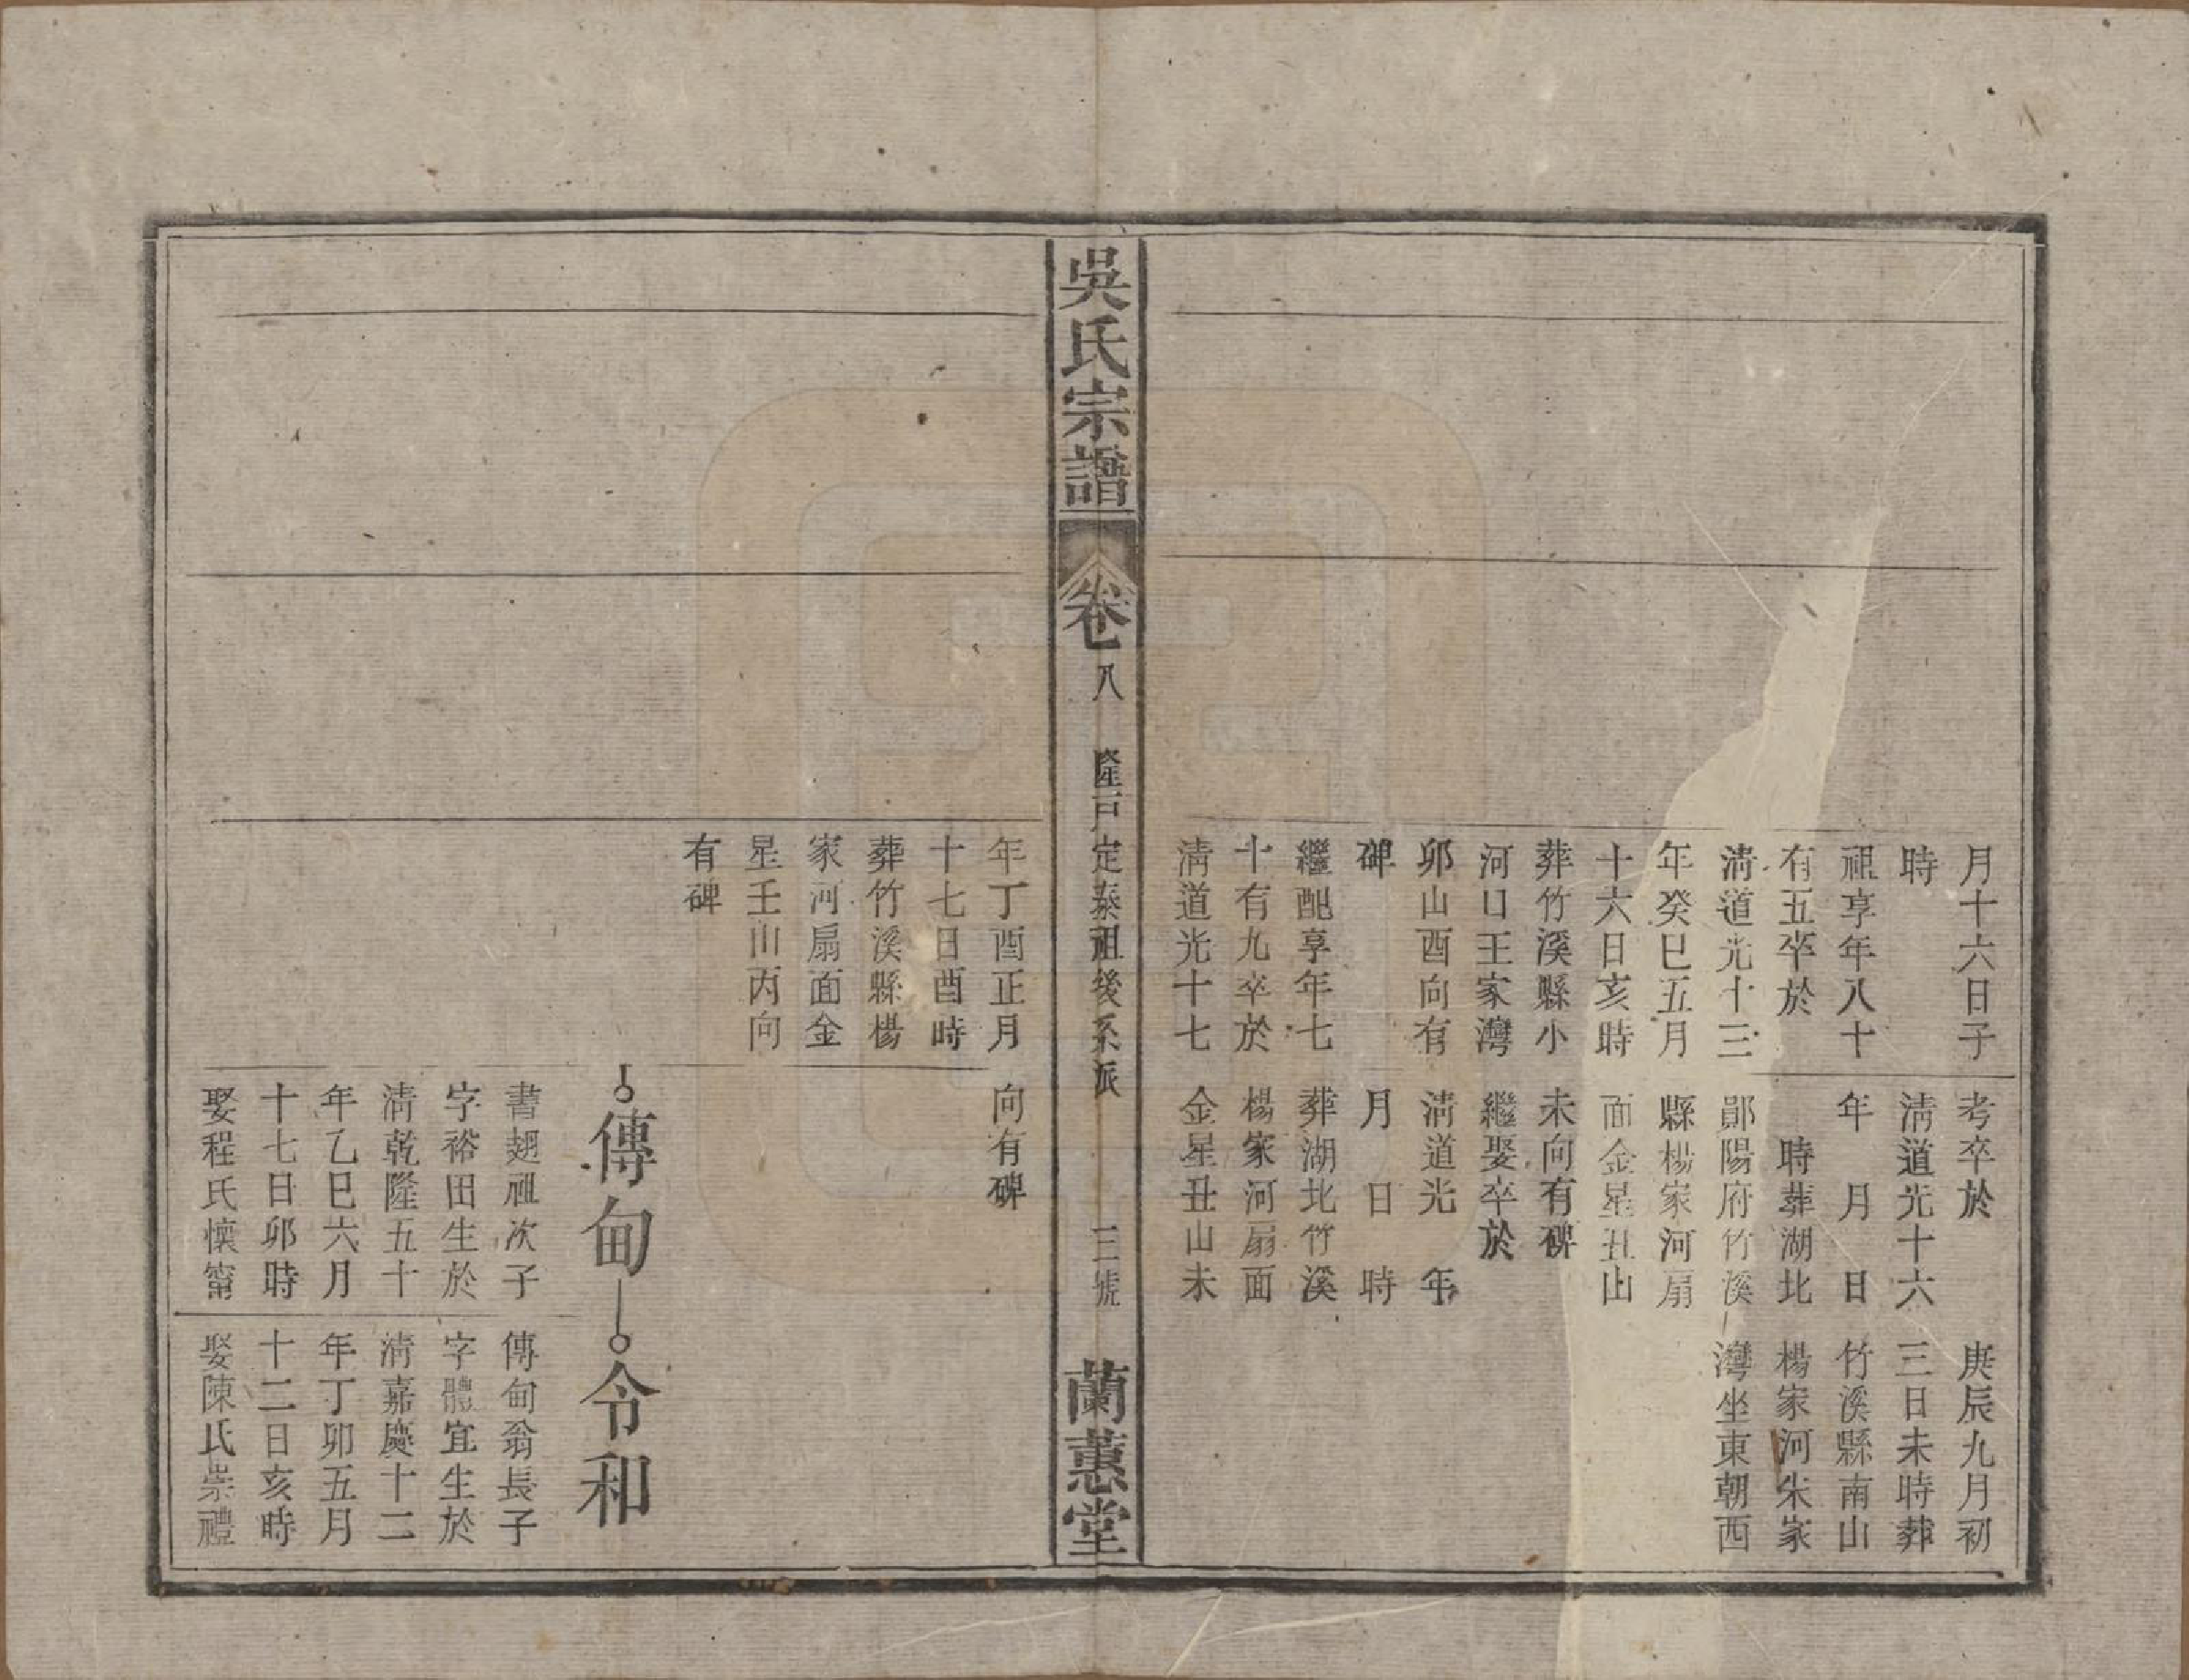 月十六日子
時
祖享年八十
有五卒於
清道光十三
年癸巳五月
十六日亥時
葬竹溪縣小
河口王家灣
卯山酉向有
碑
繼配享年七
十有九卒於
清道光十七
考卒於
清道光十六
年 月 日
時葬湖北
鄖陽府竹溪
縣楊家河扇
面金星丑山
未向有碑
繼娶卒於
清道光 年
月 日 時
葬湖北竹溪
楊家河扇面
金星丑山未
庚辰九月初
三日未時葬
竹溪縣南山
楊家河朱家
灣坐東朝西
吳氏宗譜
卷八
隆戸定泰祖後系派
三號
蘭蕙堂
年丁酉正月
十七日酉時
葬竹溪縣楊
家河扇面金
星壬山丙向
有碑
向有碑
傳甸
書翅祖次子
字裕田生於
清乾隆五十
年乙巳六月
十七日卯時
娶程氏懷甯
令和
傳甸翁長子
字體宜生於
清嘉慶十二
年丁卯五月
十二日亥時
娶陳氏崇禮